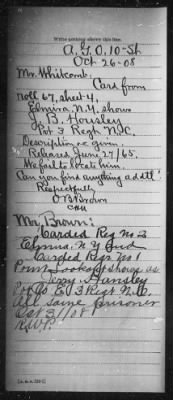 Write nothing above this line.
A.G.O. 10-St
Oct 26-08
Mr. Whitcomb.
Card from
roll 67, sheet 4,
Elmira N.Y. shows
J. B. Housley
Pvt 3 Regt N.C.
Description as given.
Released June 27/65.
We fail to locate him.
Can you find anything addtl'
Respectfully
O B Brown
Mr. Brown:
Carded Reg No 2
Elmira. N.Y. And
Carded Reg. No 1
Point Lookout shows as
Terry Hansley
Pvt Co E. 3 Regt N.C.
All same prisoner
Oct 31/08
R.W.P.